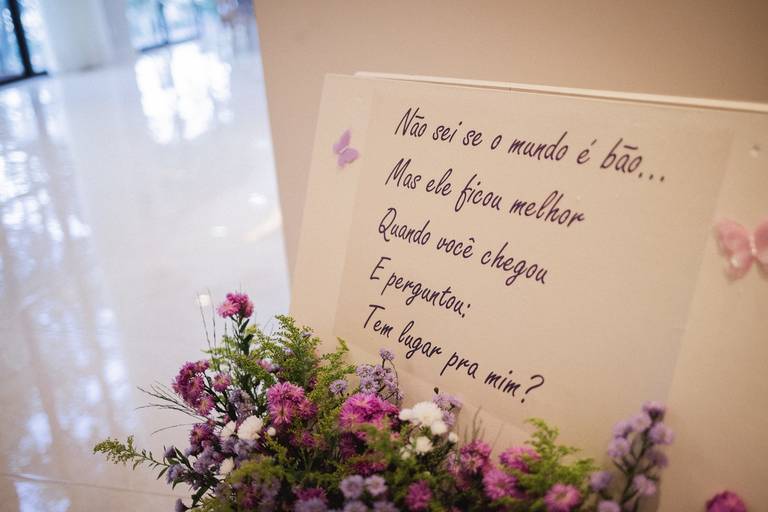 Não sei se o mundo é bão...
Mas ele ficou melhor
Quando você chegou
E perguntou:
Tem lugar pra mim?